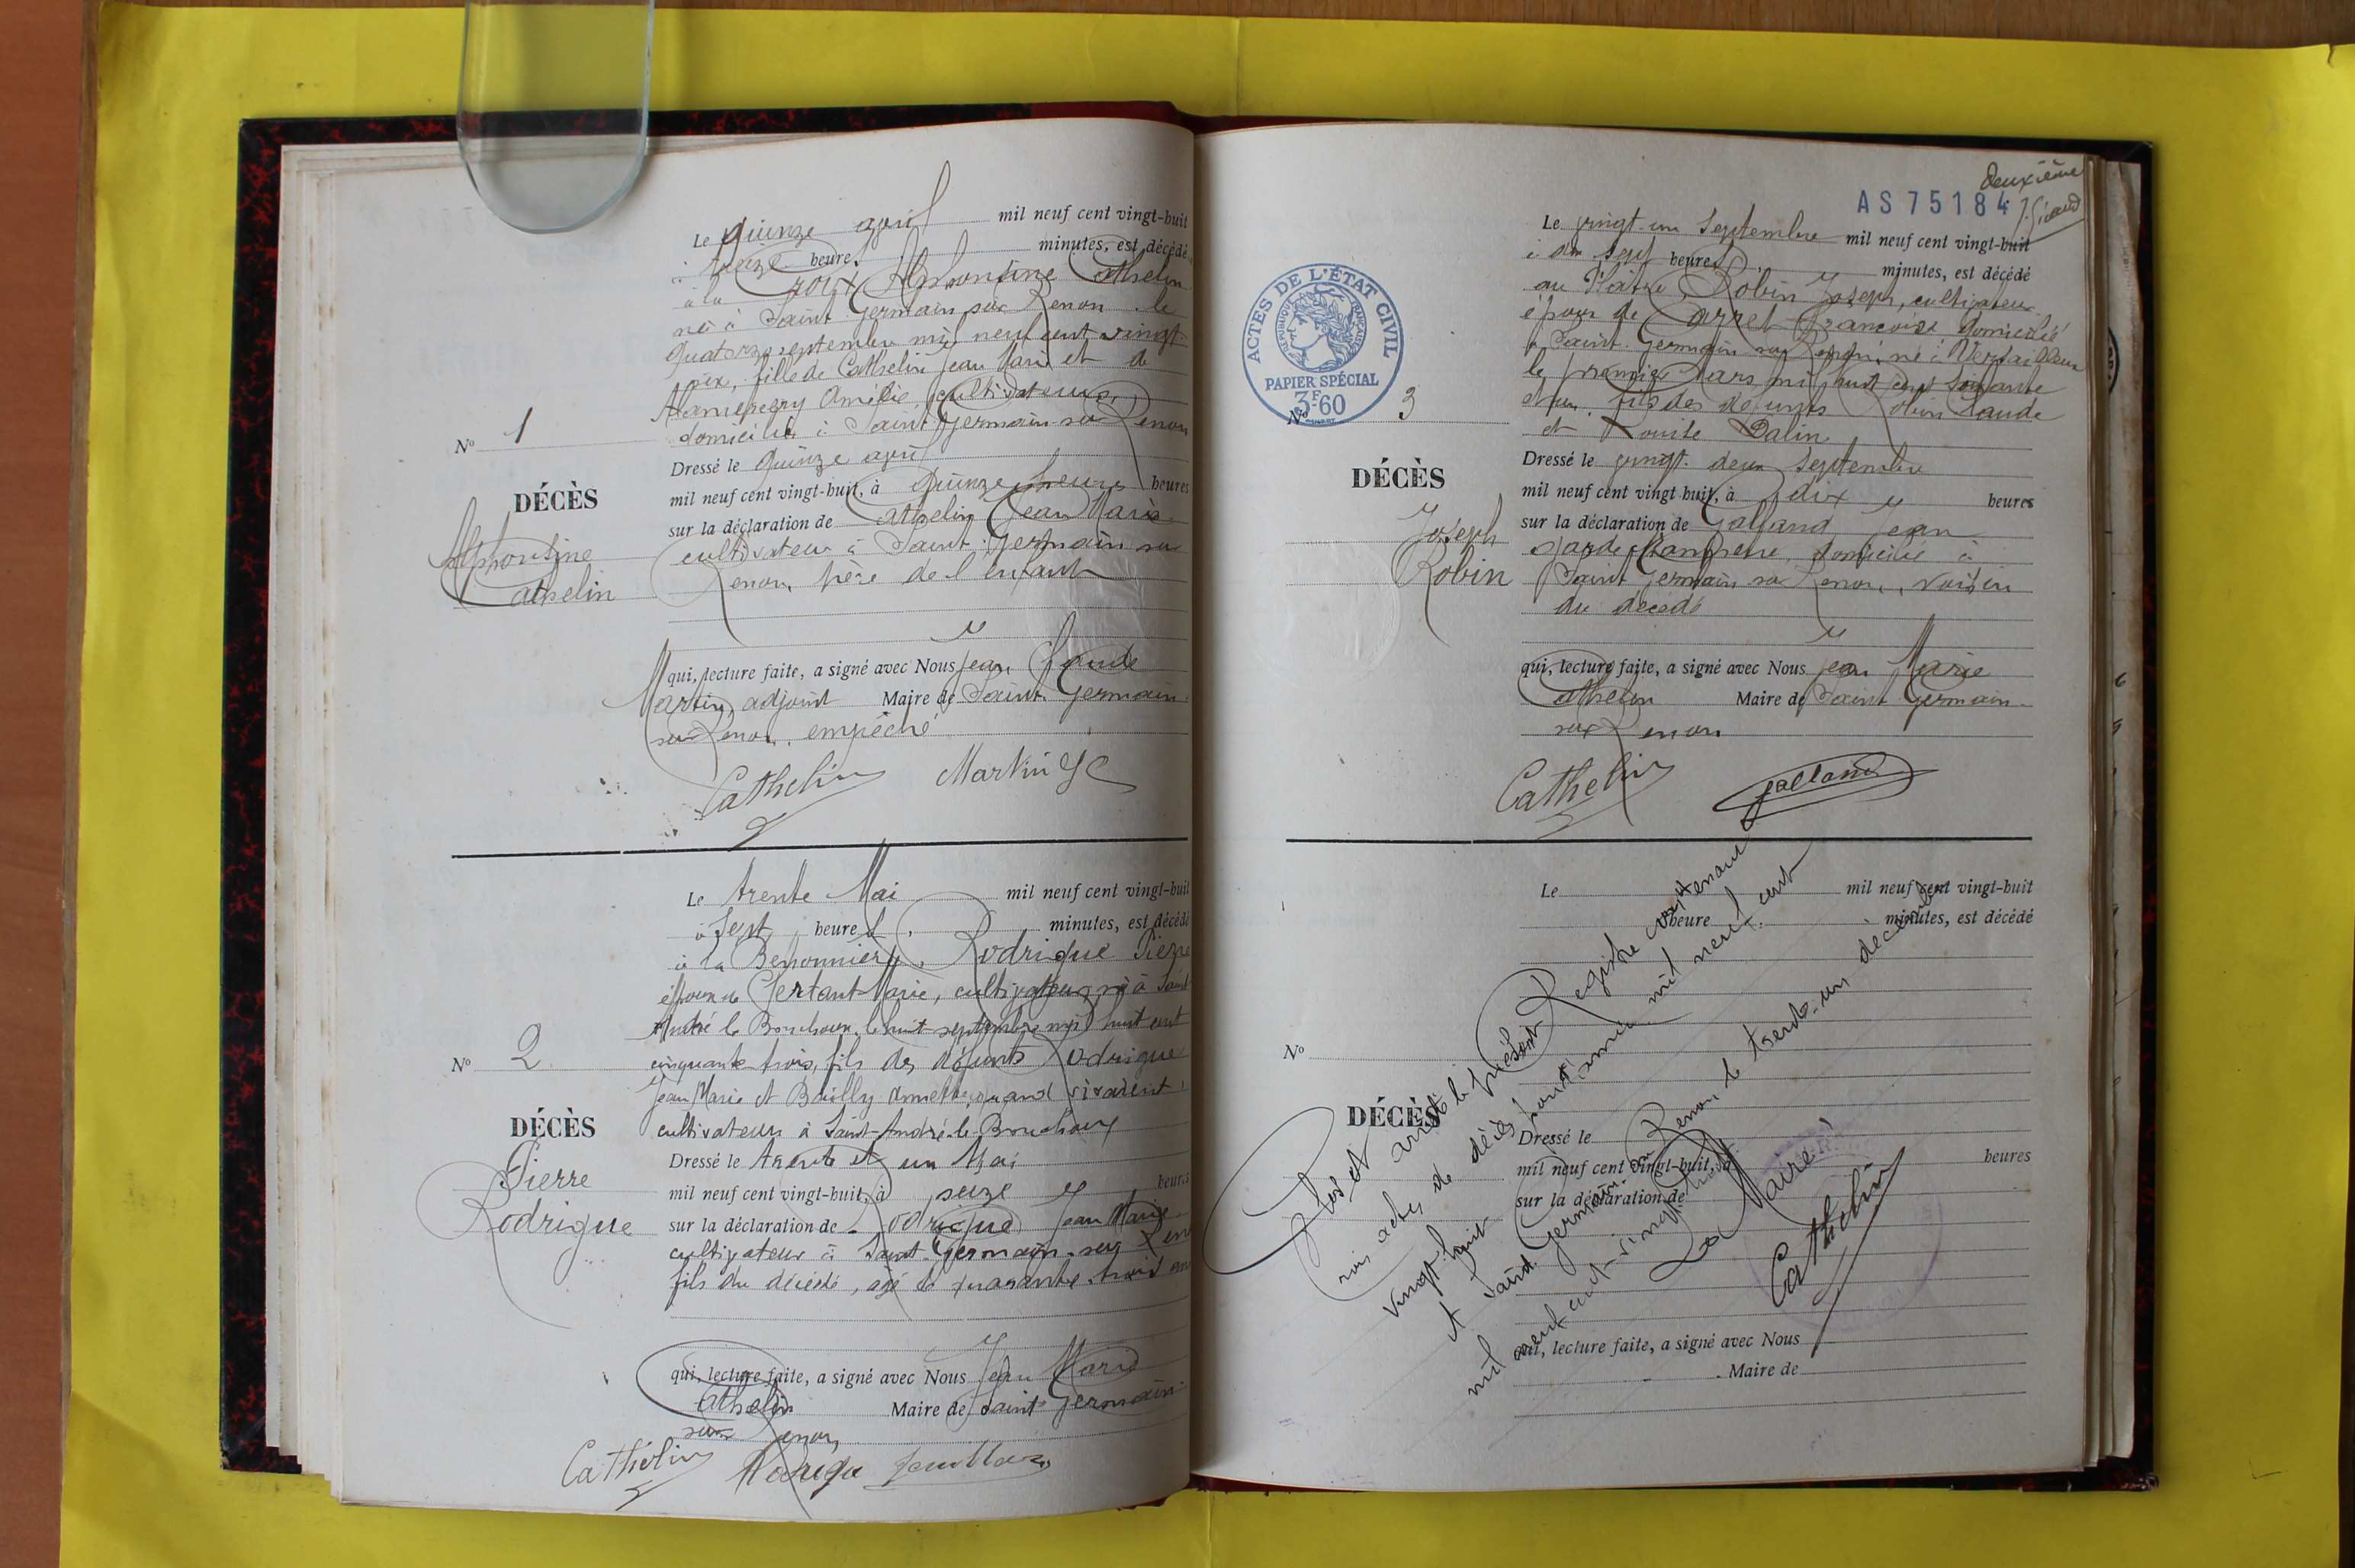 Le quinze avril mil neuf cent vingt-huit
à treize heures minutes, est décédé
à la Alphonsine Cathelin
né à Saint Germain sur Renon le
quatorze septembre mil neuf cent vingt
six, fille de Cathelin Jean Marie et de
Amélie, cultivateurs,
domiciliés à Saint Germain sur Renon
Dressé le quinze avril
mil neuf cent vingt-huit, à quinze heures heures
sur la déclaration de Cathelin Jean Marie
cultivateur à Saint Germain sur
Renon, père de l'enfant
qui, lecture faite, a signé avec Nous Jean Claude
Martin, adjoint Maire de Saint Germain
sur Renon, empêché
Cathelin Martin JC
N° 1
DÉCÈS
Alphonsine
Cathelin
Le trente Mai mil neuf cent vingt-huit
à Sept heures minutes, est décédé
à la Rodrigue Pierre
époux de Marie, cultivateur, né à Saint
André le Bouchoux, le huit septembre mil huit cent
cinquante trois, fils des défunts Rodrigue
Jean Marie et Bailly Annette, quand vivaient
cultivateurs à Saint-André-le-Bouchoux
Dressé le trente et un Mai
mil neuf cent vingt-huit, à seize heures
sur la déclaration de Rodrigue Jean Marie
cultivateur à Saint-Germain-sur Renon
fils du décédé, âgé de quarante trois ans
qui, lecture faite, a signé avec Nous Jean Marie
Cathelin Maire de Saint Germain
sur Renon
Cathelin Rodrigue Jean Marie
N° 2
DÉCÈS
Pierre
Rodrigue
deuxième
AS 75184
Le vingt-un Septembre mil neuf cent vingt-huit
à dix sept heures minutes, est décédé
au Robin Joseph, cultivateur
époux de Carret Françoise domicilié
à Saint Germain sur Renon, né à Versailleux
le premier Mars mil huit cent soixante
et un, fils des défunts Robin Claude
et Louise Dalin
Dressé le vingt-deux Septembre
mil neuf cent vingt-huit, à dix heures
sur la déclaration de Galland Jean
garde-champêtre, domicilié à
Saint Germain sur Renon, voisin
du décédé
qui, lecture faite, a signé avec Nous Jean Marie
Cathelin Maire de Saint Germain
sur Renon
Cathelin Galland
ACTES DE L'ÉTAT CIVIL
RÉPUBLIQUE FRANÇAISE
PAPIER SPÉCIAL
3F60
N° 3
DÉCÈS
Joseph
Robin
Le mil neuf cent vingt-huit
à heure minutes, est décédé
N°
DÉCÈS
Dressé le
mil neuf cent vingt-huit, à heures
sur la déclaration de
qui, lecture faite, a signé avec Nous
Maire de
Clos et arrêté le présent Registre contenant
trois actes de décès pour l'année mil neuf cent
vingt-huit
A Saint Germain sur Renon le trente-un décembre
mil neuf cent-vingt huit
Le Maire
Cathelin